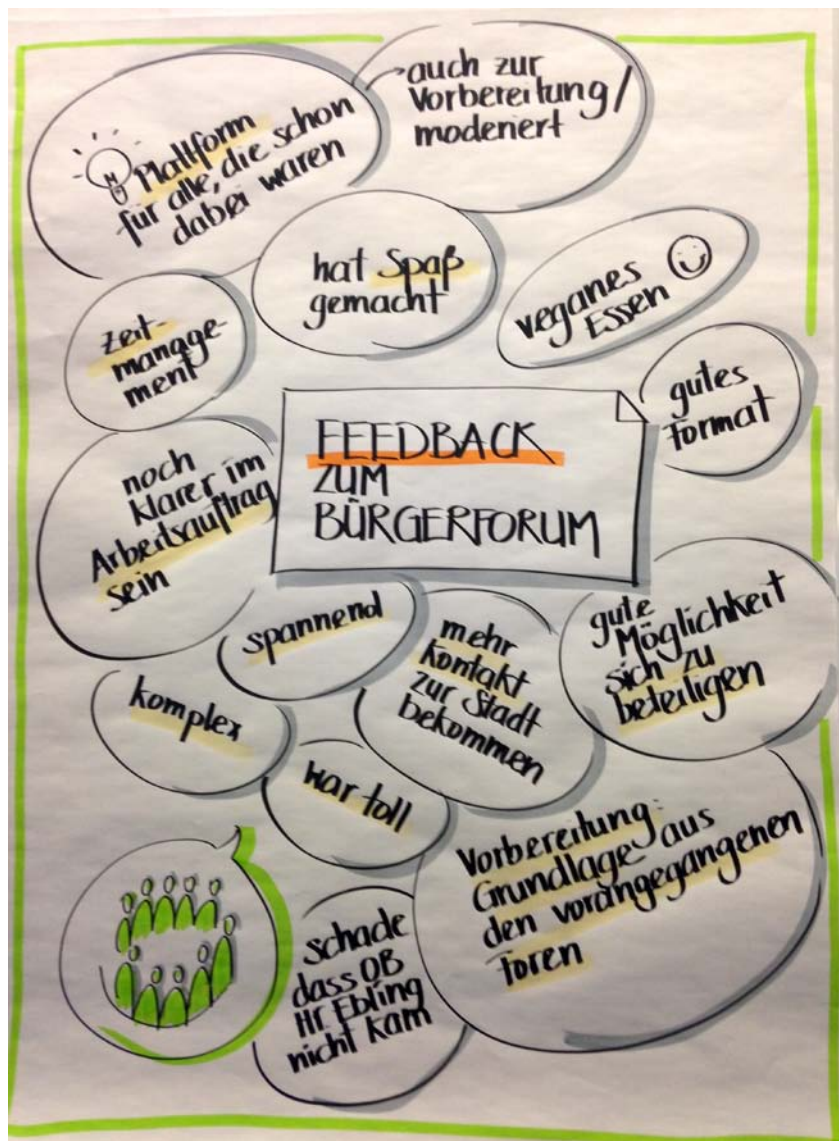 Plattform
für alle, die schon
dabei waren
auch zur
Vorbereitung/
moderiert
hat Spaß
gemacht
veganes
Essen
zeit-
manage-
ment
gutes
Format
FEEDBACK
ZUM
BÜRGERFORUM
noch
klarer im
Arbeitsauftrag
sein
spannend
mehr
Kontakt
zur Stadt
bekommen
gute
Möglichkeit
sich zu
beteiligen
komplex
war toll
Vorbereitung:
Grundlage aus
den vorangegangenen
Foren
schade
dass OB
Hr Ebling
nicht kam